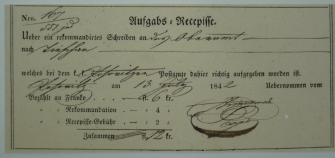 Aufgabs-Recepisse.
Nro. 167
Ueber ein rekommandirtes Schreiben an das Oberamt
nach
welches bei dem k.k. Postamte dahier richtig aufgegeben worden ist.
am 13 July 1842 Uebernommen vom
Bezahlt an Franko 6 kr.
" Rekommandation - 4 "
" Recepisse-Gebühr - 2 "
Zusammen 12 kr.